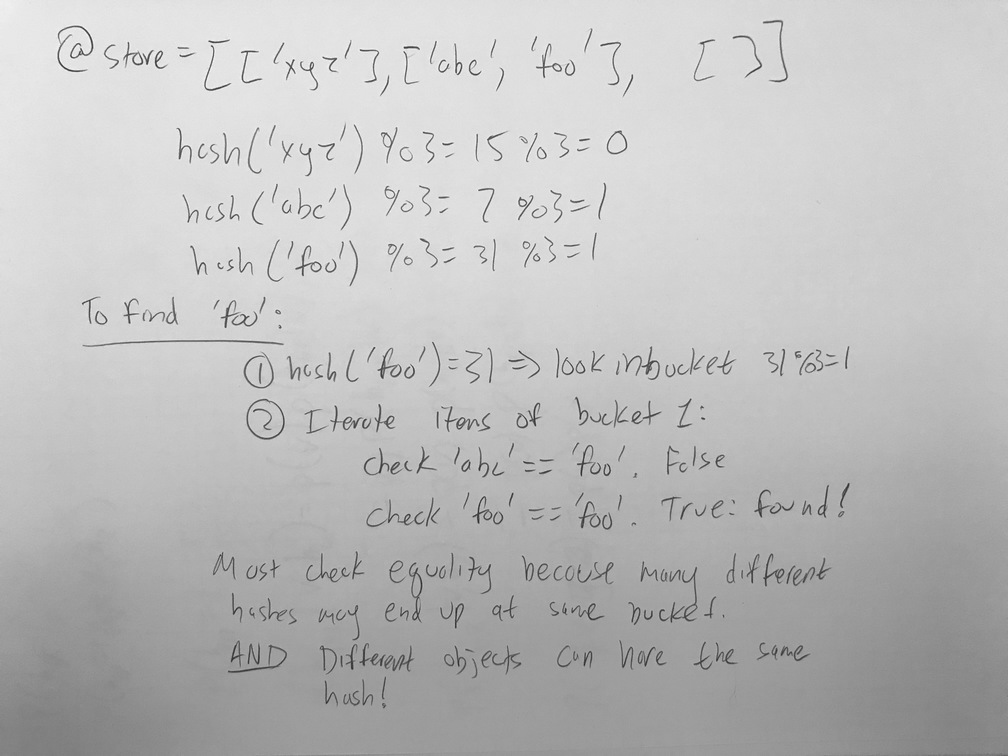 @store = [['xyz'], ['abc', 'foo'], []]
hash('xyz') %3 = 15 %3 = 0
hash('abc') %3 = 7 %3 = 1
hash('foo') %3 = 31 %3 = 1
To find 'foo':
① hash('foo') = 31 => look in bucket 31%3=1
② Iterate items of bucket 1:
check 'abc' == 'foo'. False
check 'foo' == 'foo'. True: found!
Must check equality because many different
hashes may end up at same bucket.
AND Different objects can have the same
hash!